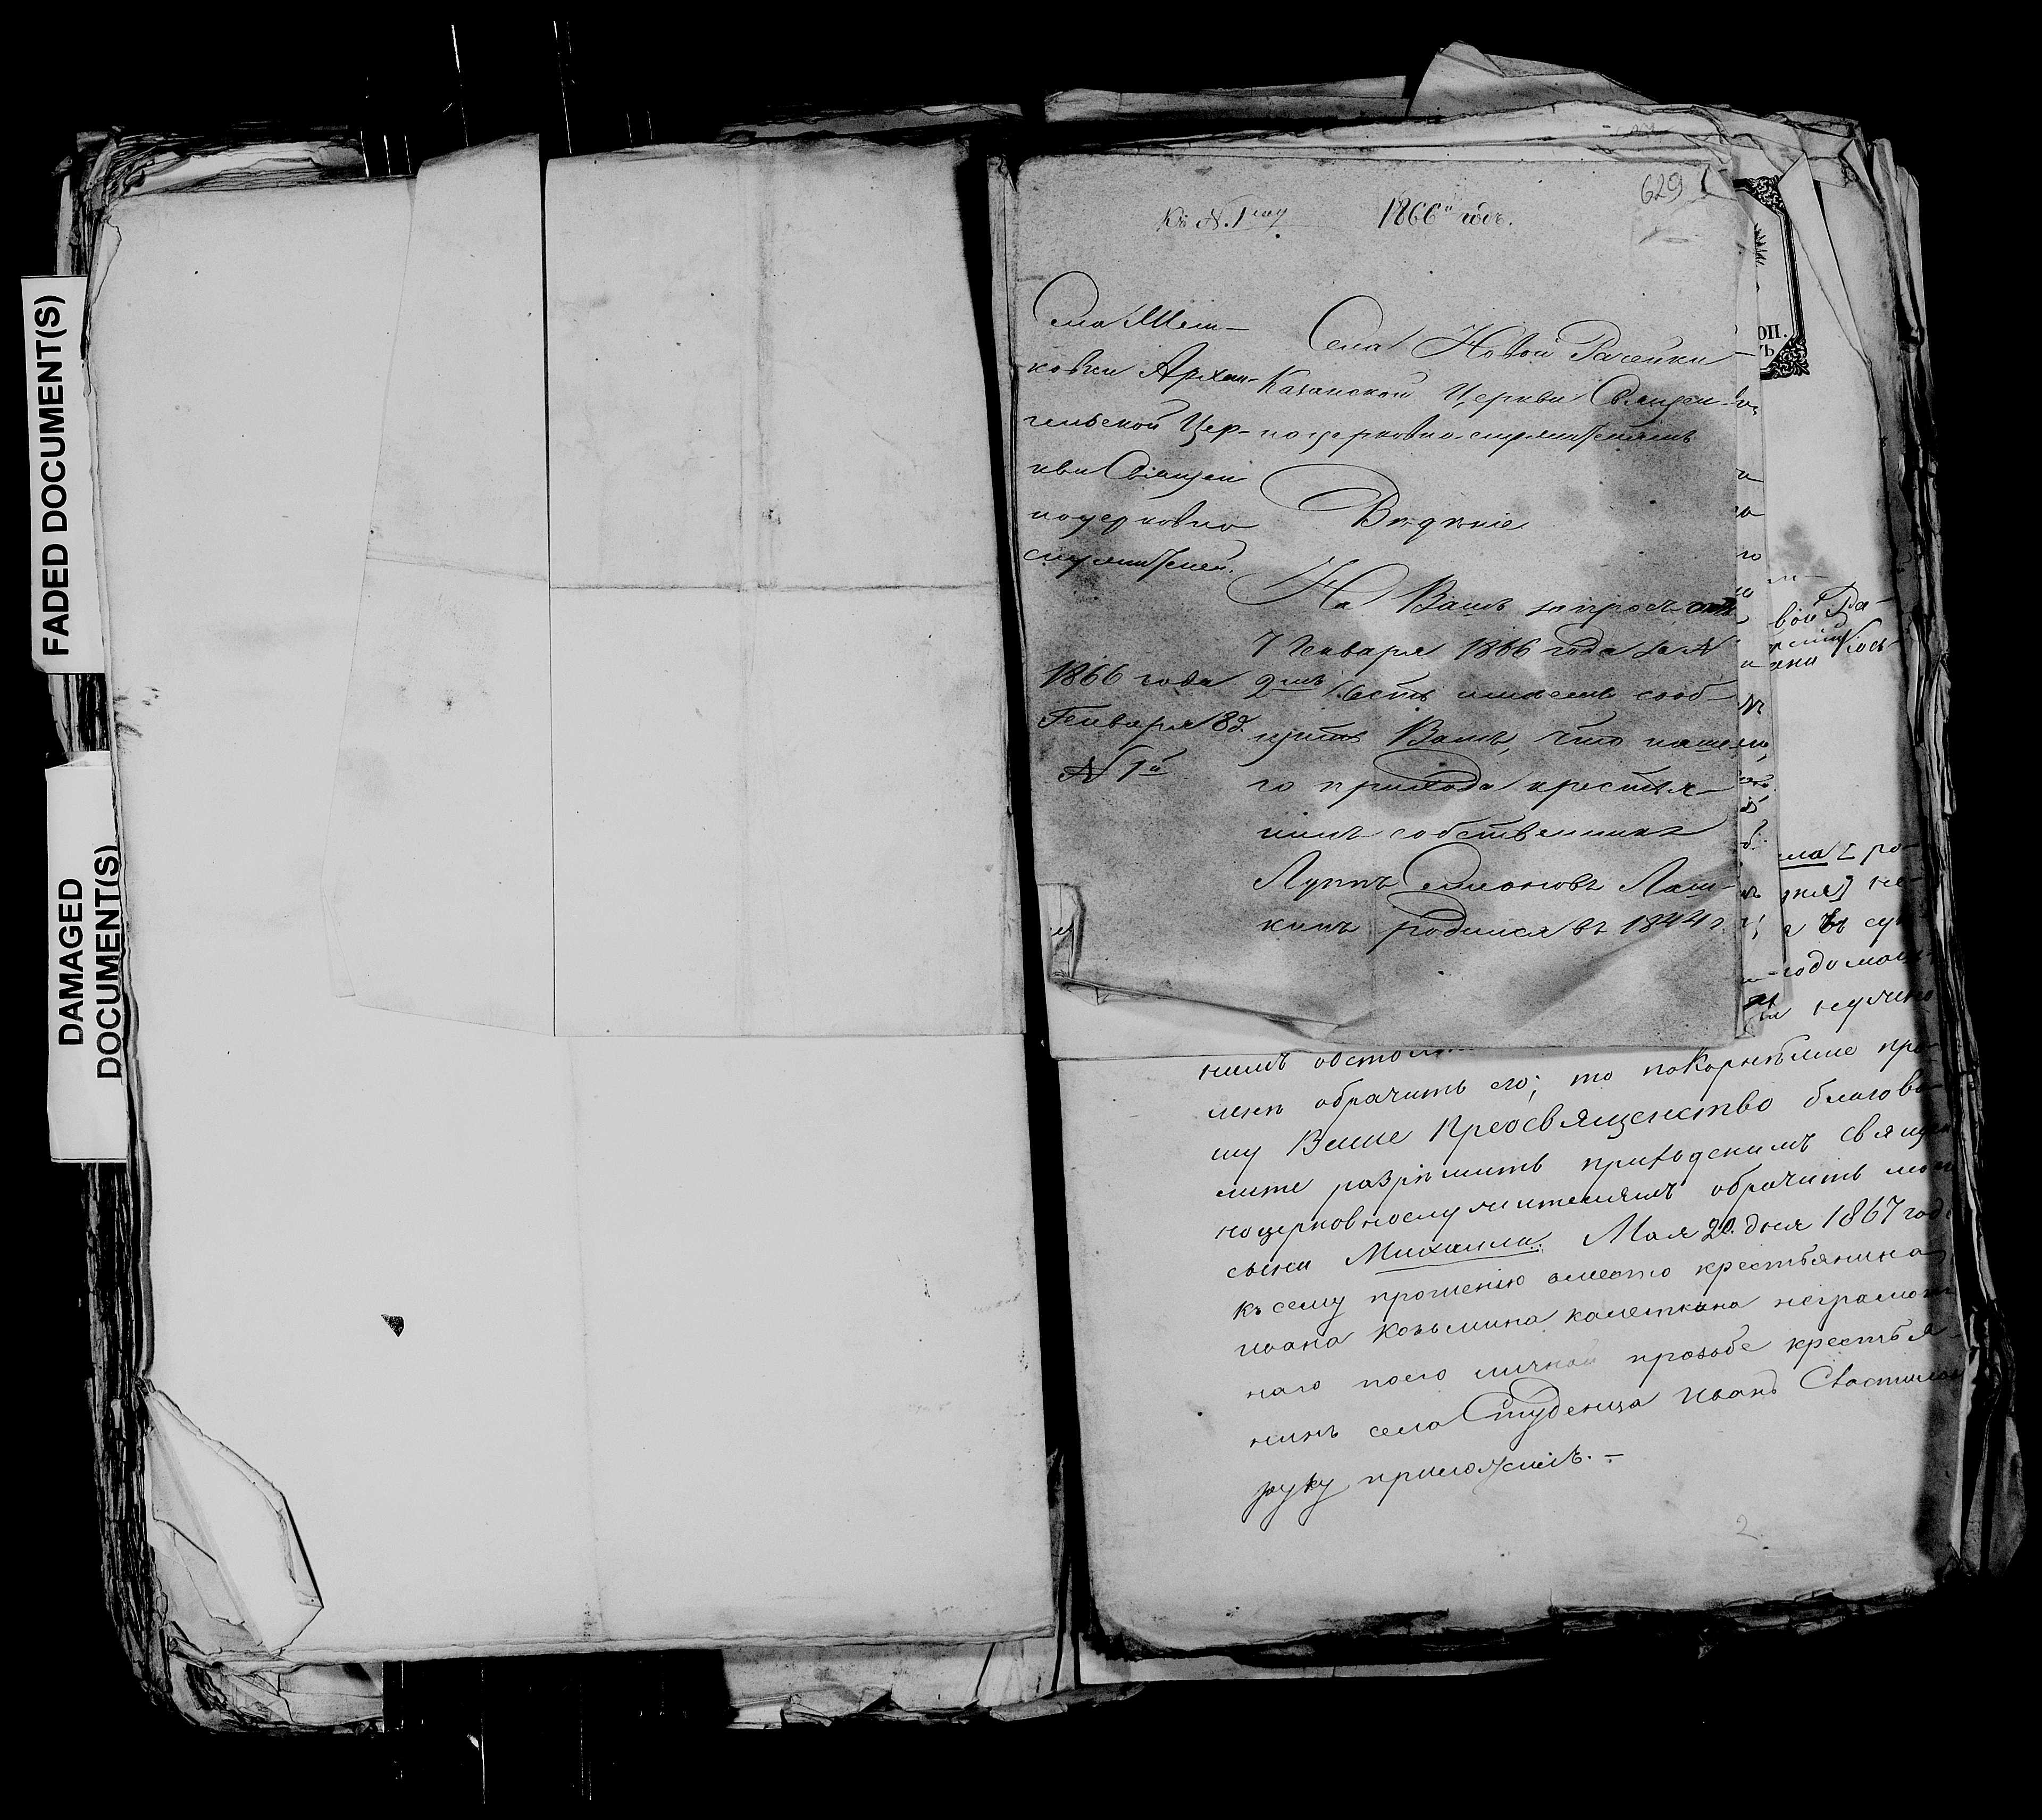 FADED DOCUMENT(S)
DAMAGED
DOCUMENT(S)
629
Къ N. 1му
1866й годъ.
Села Меш-
ковки Архан-
гельской Цер-
кви Священ
ноцерковно
служителей.
1866 года
Генваря 8 д.
N 1й
Села Новой Рачейки
Казанской Церкви Священ-
ноцерковно-служителямъ
Вѣдѣніе
На Вашъ запросъ отъ
7 Генваря 1866 года за N
2мъ честь имѣемъ сооб-
щить Вамъ, что наше-
го прихода крестья-
нинъ собственникъ
Лупъ Симоновъ Лаш-
кинъ родился въ 1844 г.
оп.
вой Ра-
Кось-
ма [ ро-
не-
въ
нимъ
обрачить его; то покорнѣйше про-
шу Ваше Преосвященство благово-
лите разрѣшить приходскимъ Священ
ноцерковнослужителямъ обрачить мое
сына Михаила. Мая 20. дня 1867 год
къ сему прошенію вместо крестьянина
ивана Козьмина каметкина неграмот
наго поего личной прозьбе крестья-
нинъ села Студенца Иванъ
руку приложилъ. -
2